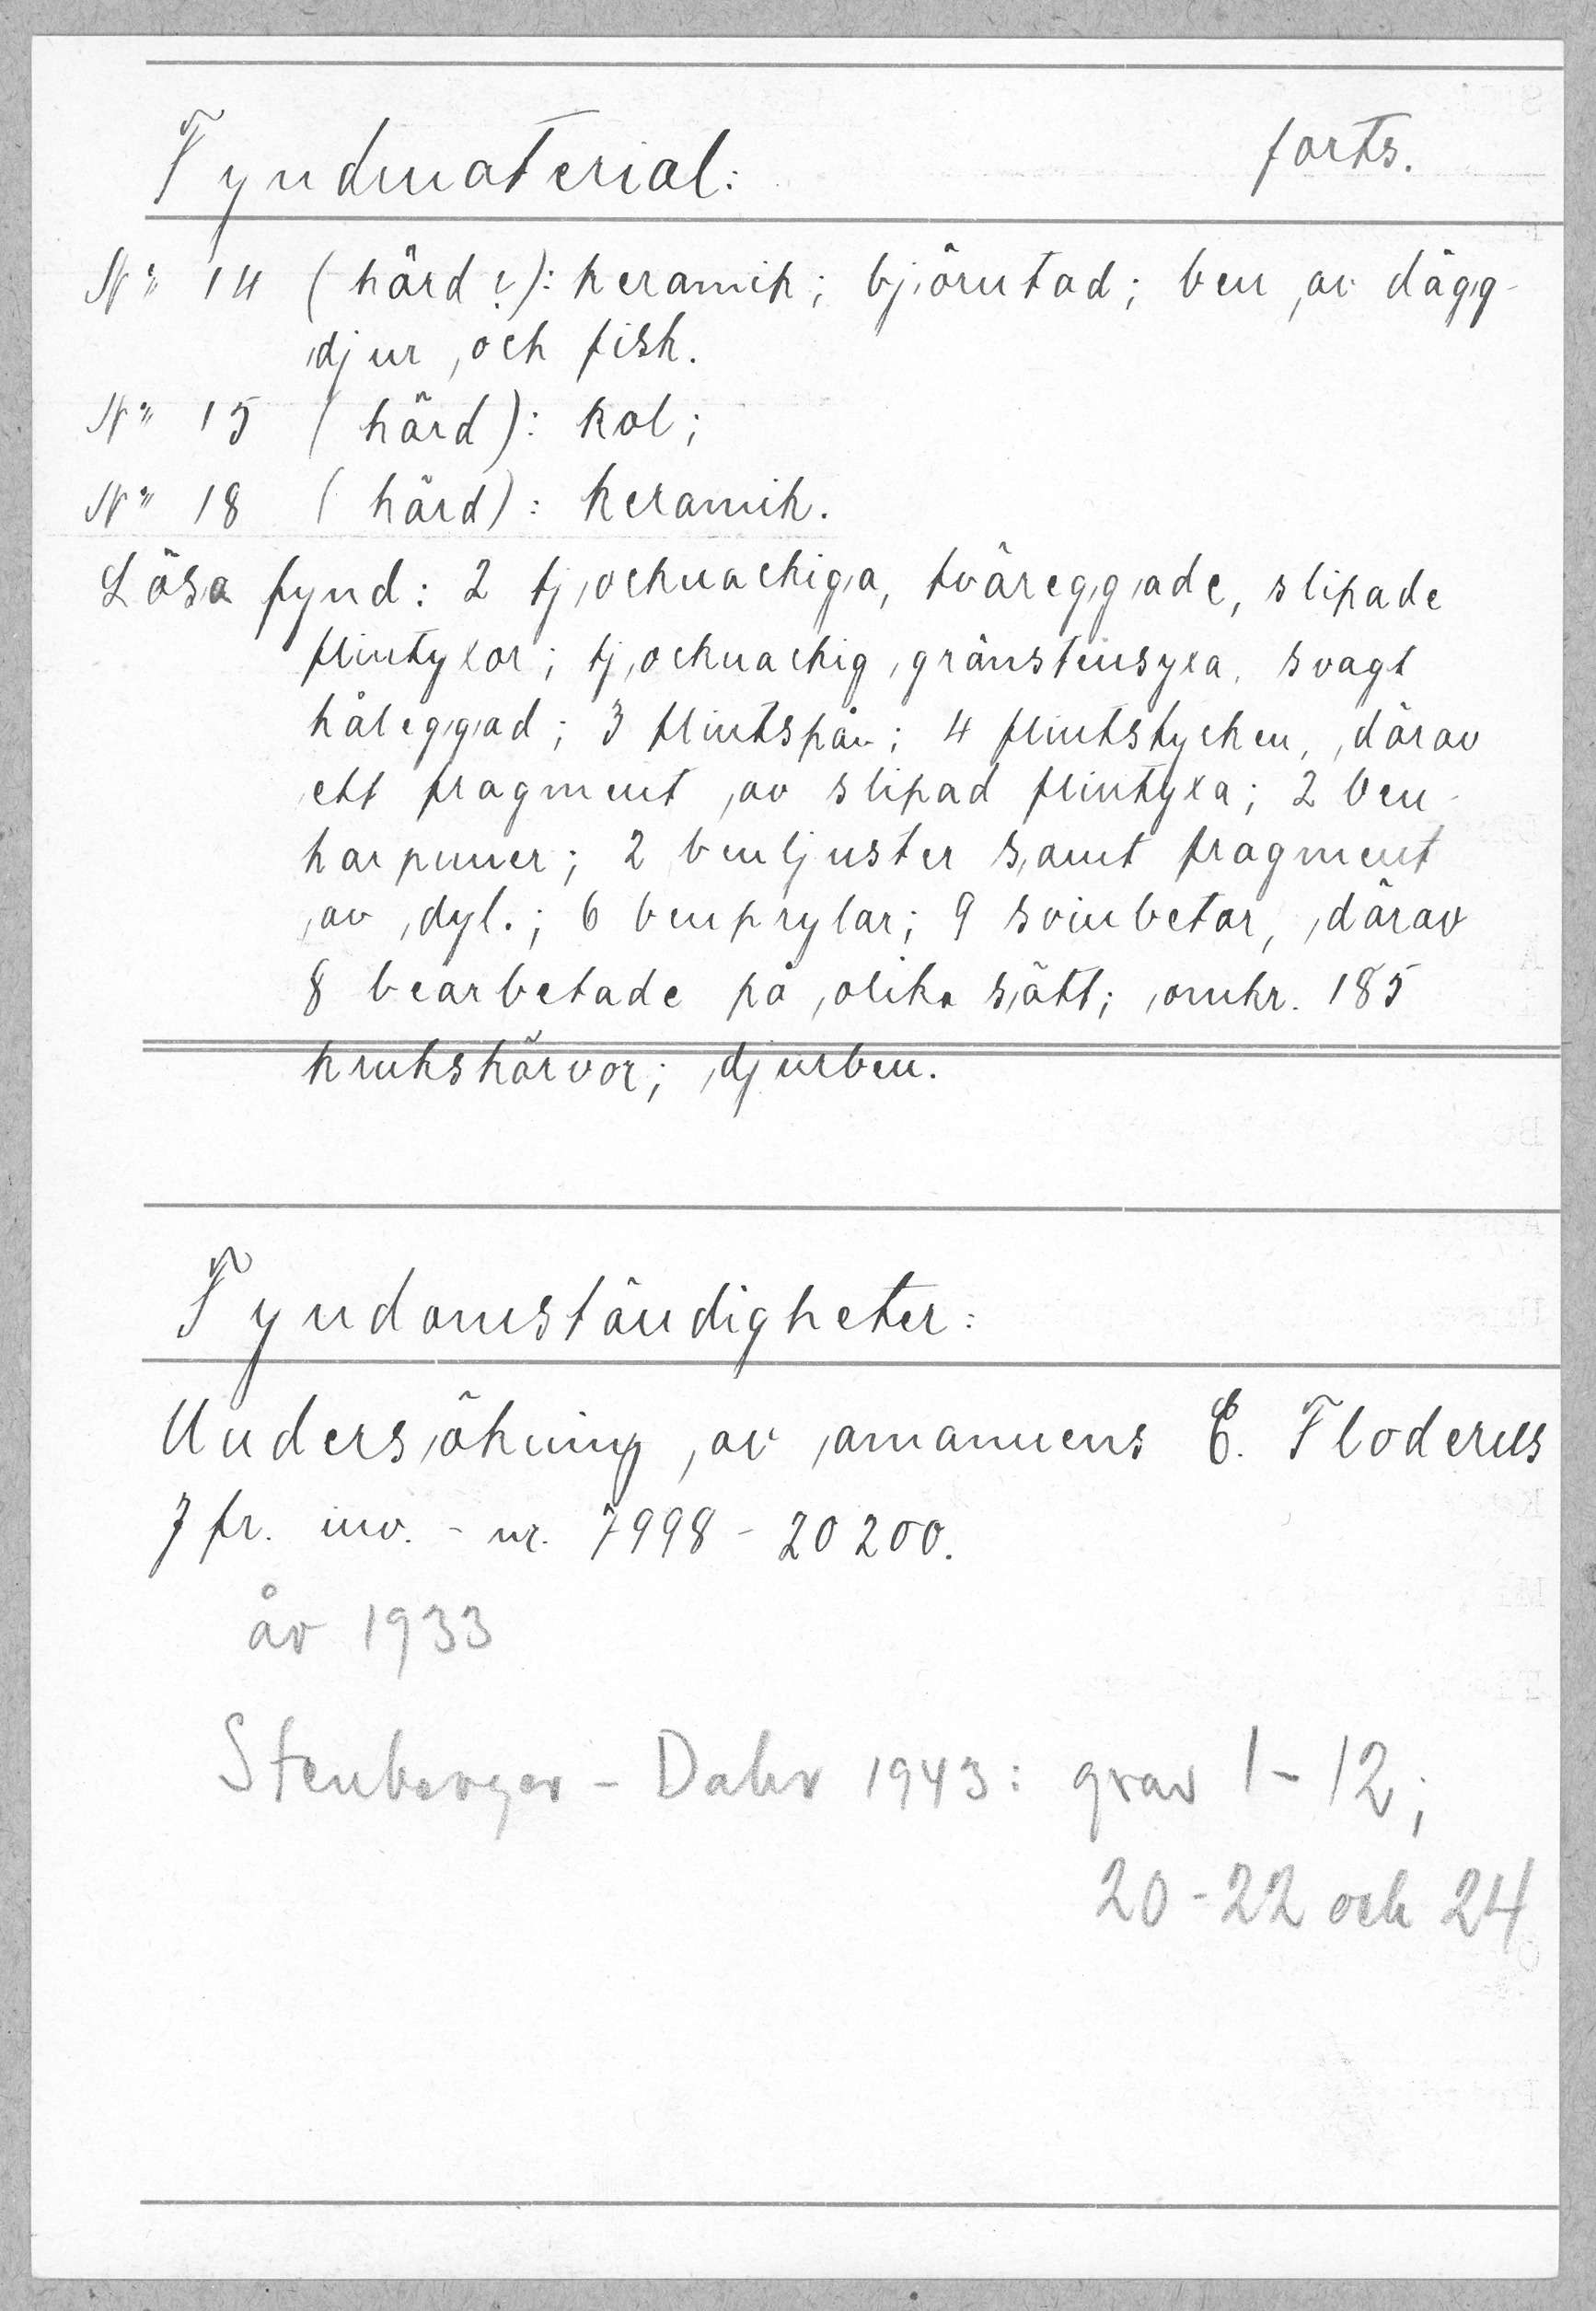 Fyndmaterial: forts.
Nr 14 (härd?): keramik; björntad; ben av dägg-
djur och fisk.
Nr 15 (härd): kol;
Nr 18 (härd): keramik.
Lösa fynd: 2 tjocknackiga, tväreggade, slipade
flintyxor; tjocknackig grönstensyxa, svagt
håleggad; 3 flintspån; 4 flintstycken, därav
ett fragment av slipad flintyxa; 2 ben-
harpuner; 2 benljuster samt fragment
av dyl.; 6 benprylar; 9 svinbetar, därav
8 bearbetade på olika sätt; omkr. 185
krukskärvor; djurben.
Fyndomständigheter:
Undersökning av amanuens E. Floderus
Jfr. inv.-nr. 7998-20200.
år 1933
Stenberger - Dahr 1943: grav 1-12;
20-22 och 24